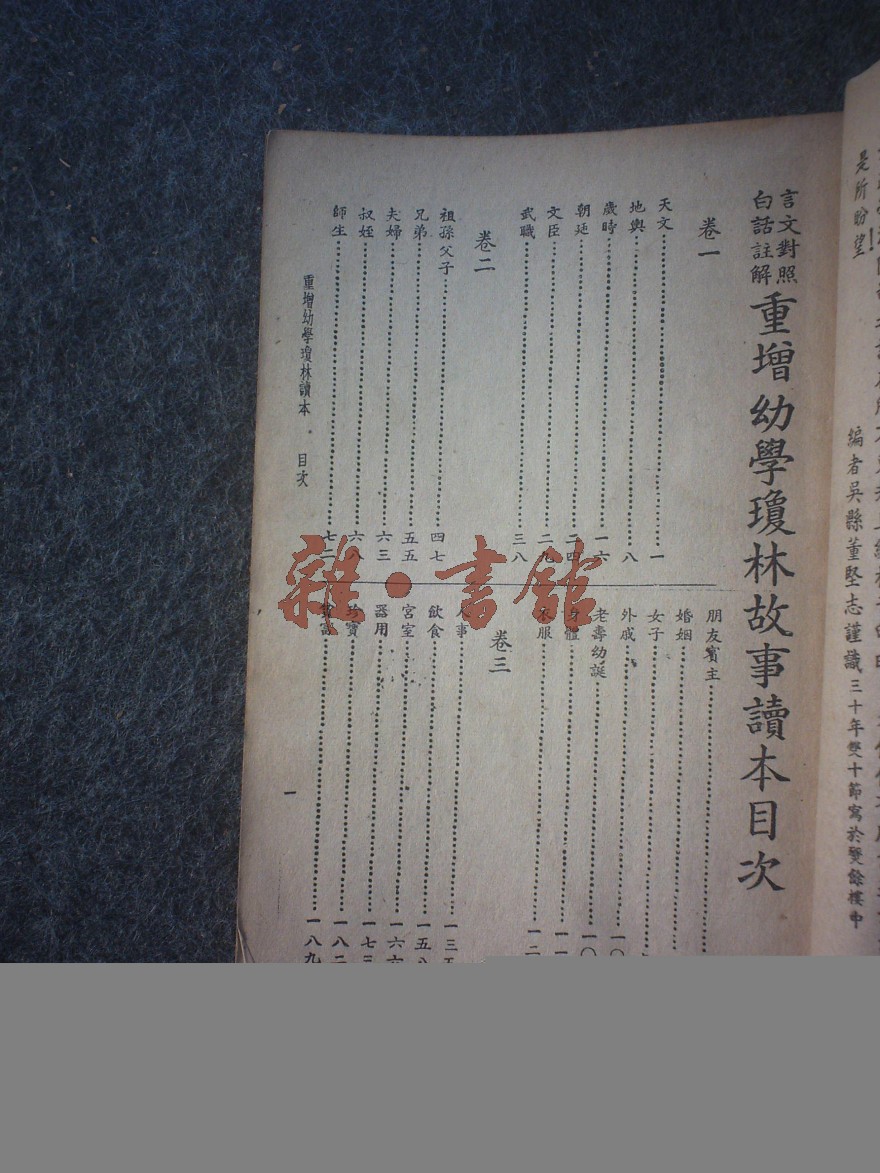 是所盼望！
編者吳縣董堅志謹識三十年雙十節寫於雙餘樓中
言文對照
白話註解
重增幼學瓊林故事讀本目次
卷一
天文 一
地輿 八
歲時 一六
朝廷 二四
文臣 二九
武職 三八
卷二
祖孫父子 四七
兄弟 五五
夫婦 六三
叔姪 六八
師生 七二
朋友賓主
婚姻
女子
外戚
老壽幼誕
身體
衣服
卷三
人事
飲食 一五八
宮室
器用 一七三
珍寶
貧富 一八九
重增幼學瓊林讀本 目次
一
雜·書館